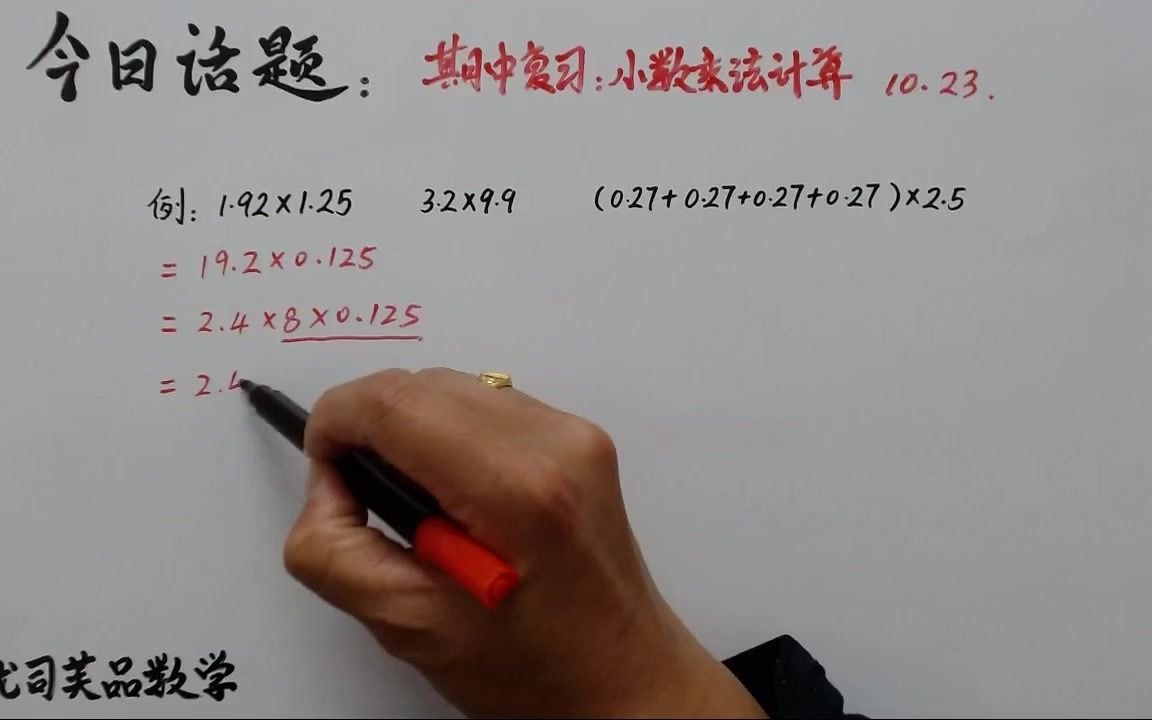 今日话题：期中复习：小数乘法计算 10.23.
例：1.92×1.25 3.2×9.9 (0.27+0.27+0.27+0.27)×2.5
=19.2×0.125
=2.4×8×0.125
=2.4
司芙品数学